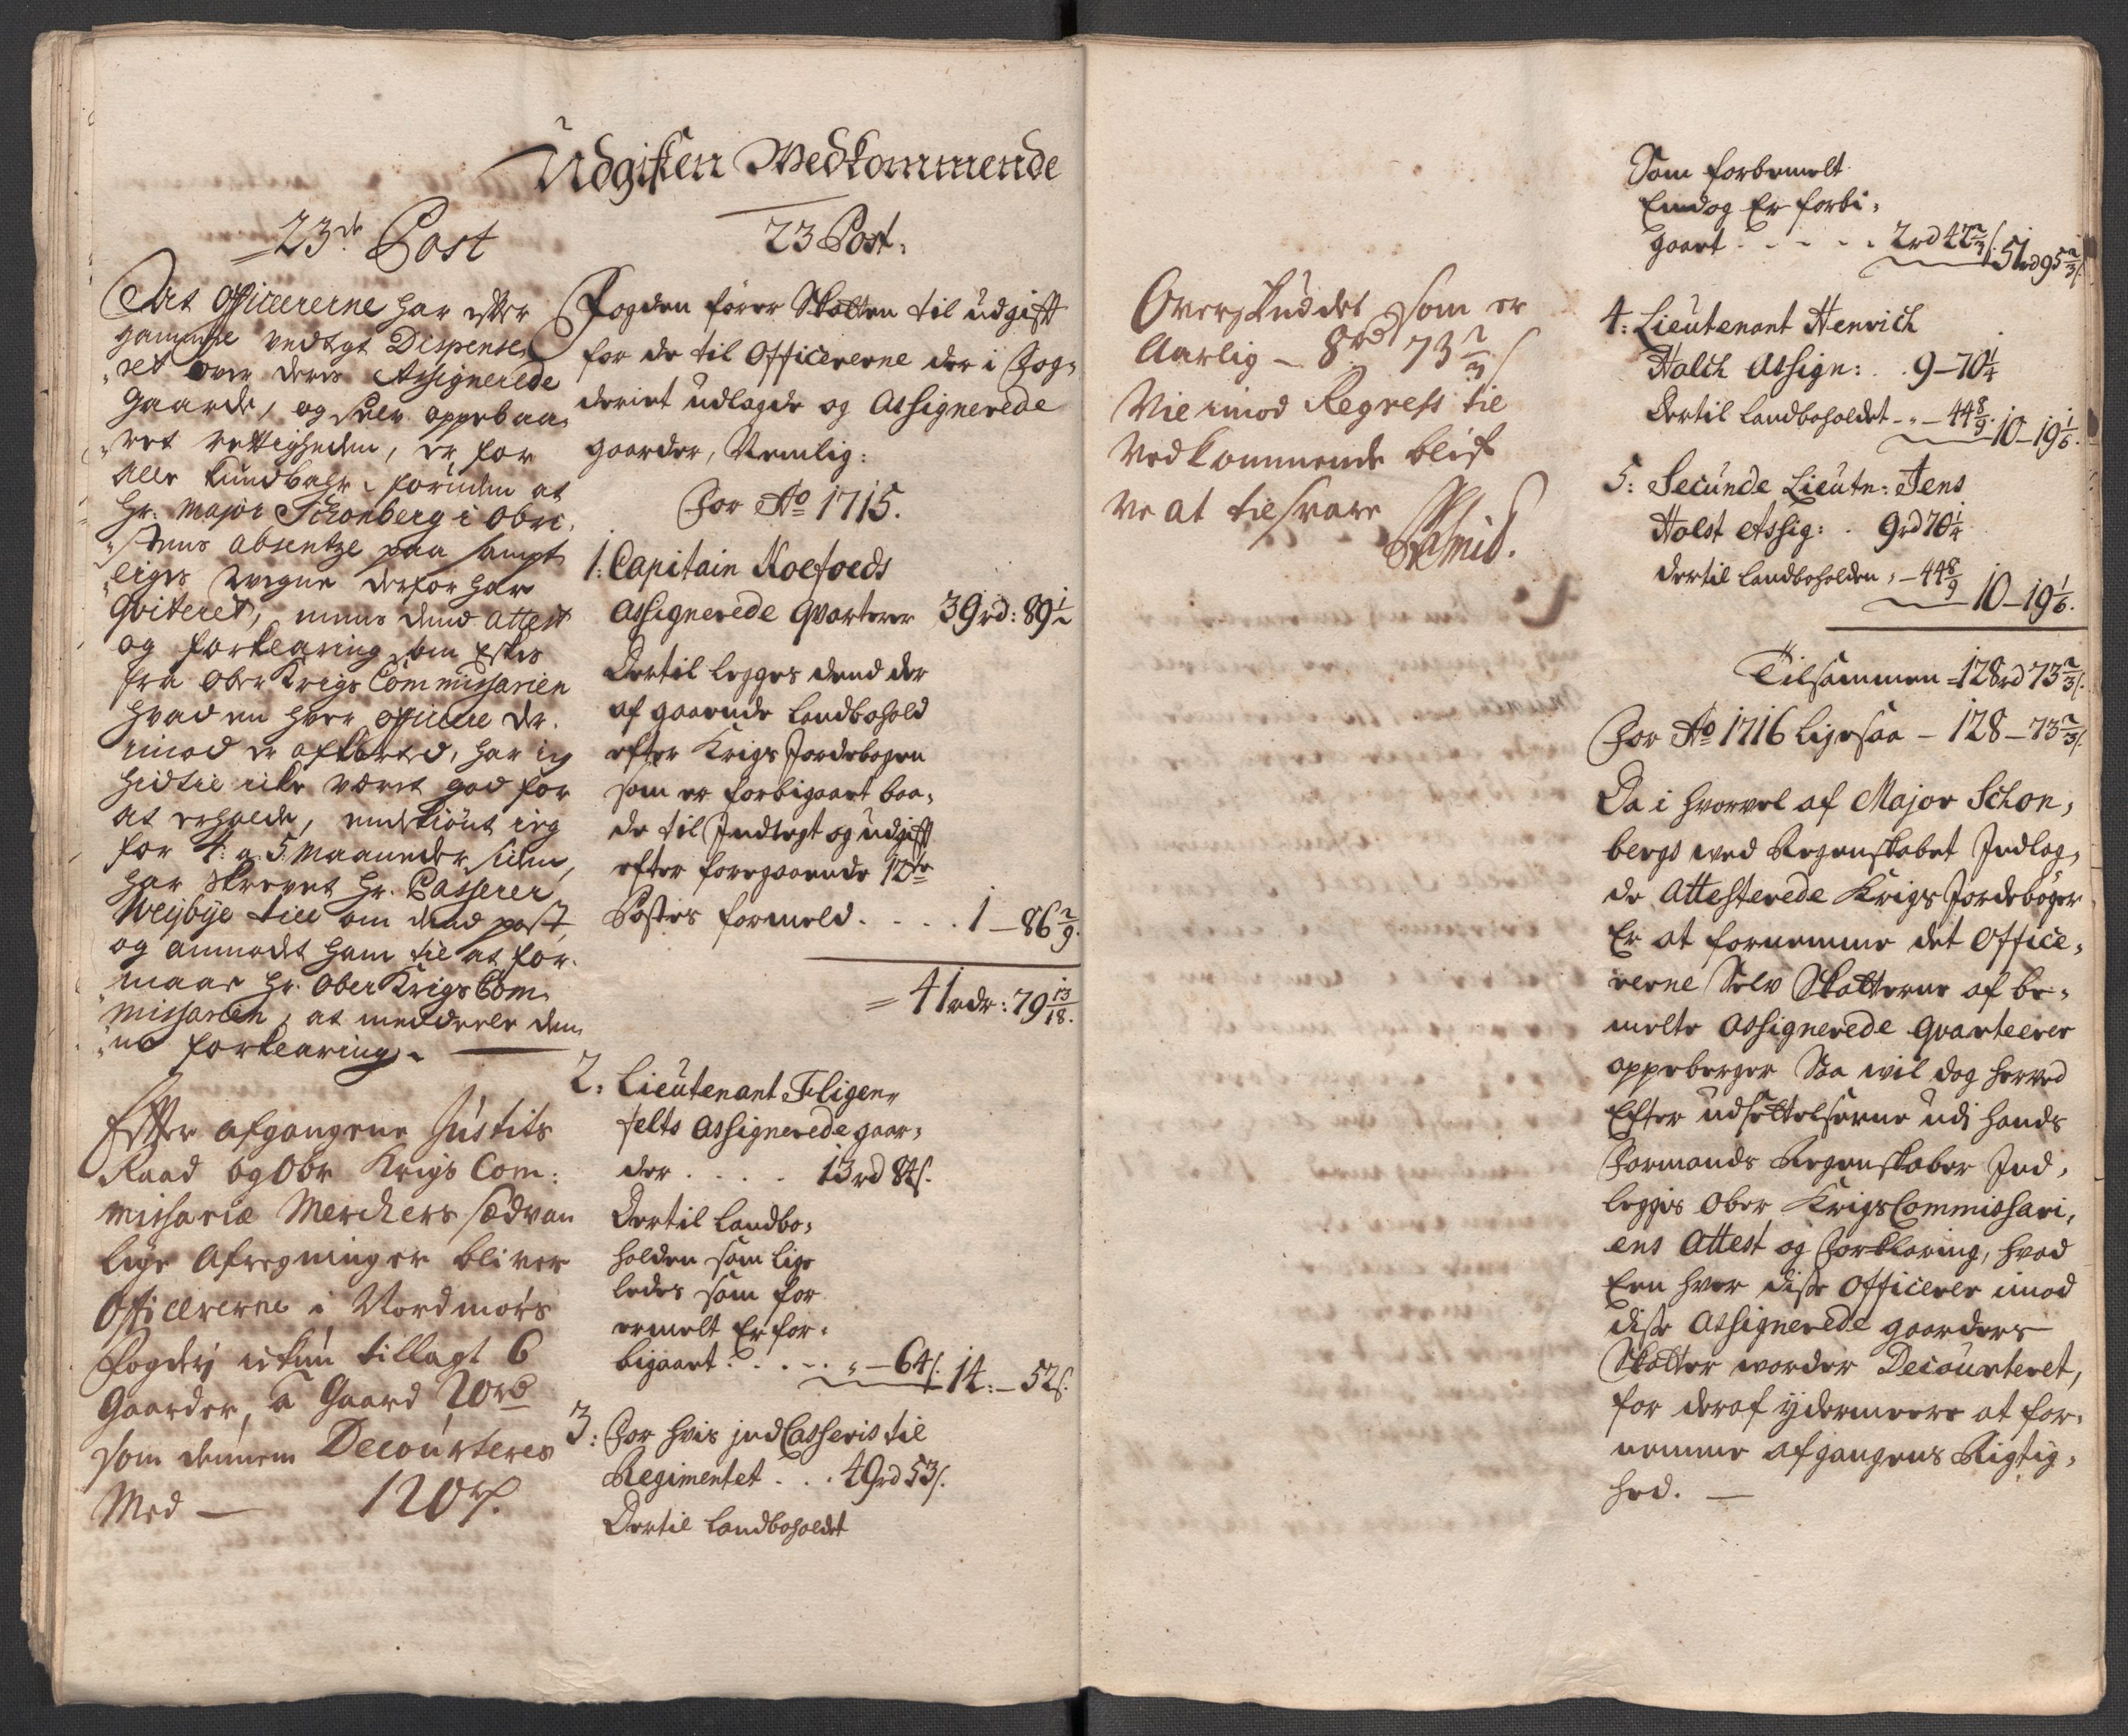 Udgiften Wedkommende
23de Post
At Officererne har efter
gammel vedtegt Dispense
ret over deres Assignerede
Gaarde, og self oppebaa
ret rettigheden, er for
alle kundbahr, foruden at
Hr: Major Schonberg i Obri
stens absentze paa sampt
liges Wegne derfor har
Qviteret, mens dend attest
og forklaring som eskes
fra Ober Krigs Commissarien
hvad en hver officere der
imod er afkortet, har ieg
hidtil icke været god for
at erholde, endskiønt ieg
for 4: a 5 Maaneder siden,
har skrevet Hr. Casserer
Weybye till om dend post,
og anmodet ham til at for
maae Hr. Ober Krigs Com
missarien, at meddeele den
ne forklaring.
Efter afgangne Justits
Raad og Obr Krigs Com:
missariæ Merchers sædvan
lige Afregninger bliver
Officererne i Nordmørs
Fogderj ickun tillagt 6
Gaarder, a Gaard 20rd
som dennem Decourteres
Med — 120rd.
23 Post.
Fogden fører Skatten til udgift
for de til Officererne der i Fog-
deriet udlagde og Assignerede
gaarder, Nemlig:
For Ao 1715.
1: Capitain Koefoeds
Assignerede Qvarterer 39rd: 89½
Dertil legges dend der
af gaaende Landbohold
efter Krigs Jordebogen
som er forbigaaet baa-
de til Indtegt og udgift
efter foregaaende 12te
Postes formeld . . . . 1 – 86 2/9.
= 41rdr: 79 13/18.
2: Lieutenant Fligen-
felts Assignerede gaar-
der . . . . 13rd 84s.
Dertil Landbo-
holden som lige
ledes som for
ermelt Er for-
bigaaet . . . . „ – 64s. 14: – 52s.
3: For hvis jnd Casseris til
Regimentet . . . 49rd 53s.
Dertil Landboholdet
Overskuddet som er
Aarlig – 8rd 73 2/3 s
Vil imod Regress til
Vedkommende blif
ve at tilsvare
Schmid.
Som forbemelt
Endog Er forbi-
gaaet . . . . 2rd 42 2/3 s. 51rd 95 2/3 s.
4: Lieutenant Henrich
Halch Assign: . . 9 – 70 1/4
Dertil Landboholdet – „ – 44 8/9. 10 – 19 1/6.
5: Secunde Lieutn: Jens
Holst Assig: . 9rd 70 1/4
dertil Landboholden „ – 44 8/9 10 – 19 1/6.
Tilsammen = 128rd 73 2/3 s.
For Ao 1716 Ligesaa – 128 – 73 2/3 s.
Da i hvorvel af Major Schon-
bergs wed Regenskabet Indlag-
de Attesterede Krigs Jordebøger
Er at fornemme det Office-
rerne Selv Skatterne af be-
melte Assignerede Qvarteerer
oppeberger Saa wil dog herved
Efter udsettelserne udi hands
Formands Regenskaber Ind-
legges Ober Krigs Commissari-
ens Attest og Forklaring, hvad
Een hver disse Officerer imod
disse Assignerede gaarders
Skatter worder Decourteret,
for deraf ydermeere at for-
nemme afgangens Rigtig-
hed. —